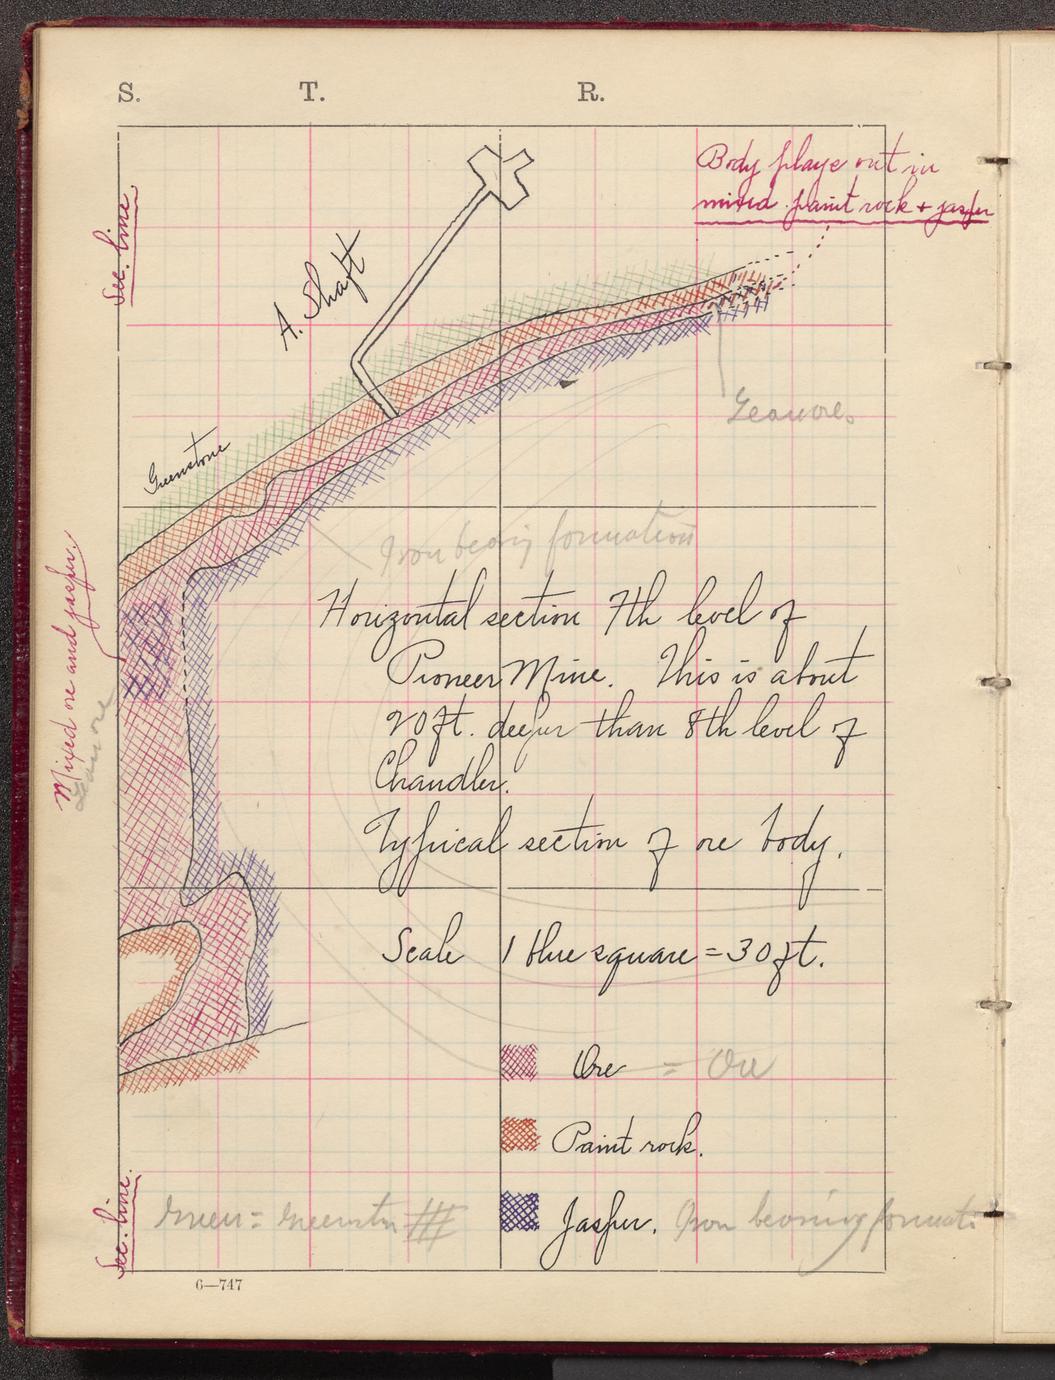 S. T. R.
Sec. line
Body plays out in
mixed paint rock + jasper
A. Shaft
Lean ore.
Greenstone
Iron bearing formation
Mixed ore and jasper.
Lean ore
Horizontal section 7th level of
Pioneer Mine. This is about
20 ft. deeper than 8th level of
Chandler.
Typical section of ore body.
Scale 1 blue square = 30 ft.
Ore = Ore
Paint rock.
Sec. line.
Green = Greenstn
Jasper. Iron bearing formati
6—747